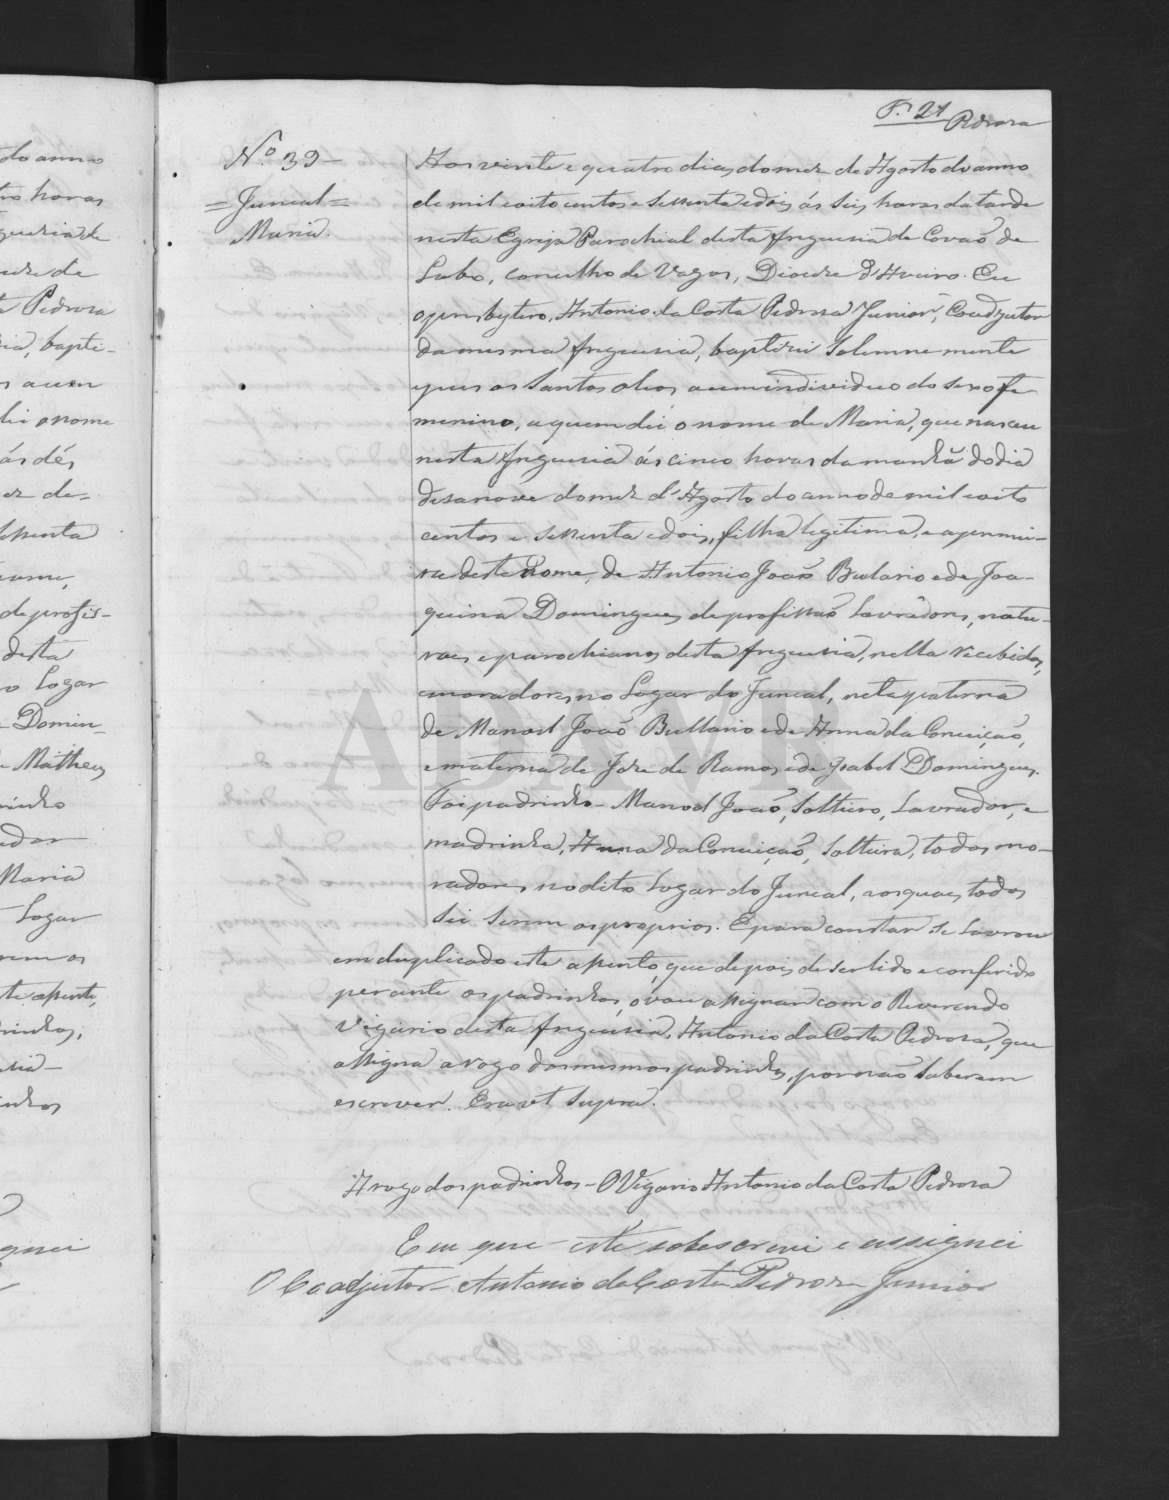 do anno
horas
de
de
Pedrosa
bapti-
a um
o nome
ás dés
de-
sessenta
de profis-
desta
Logar
Domin-
Matheus
Maria
Logar
os
te assento,
F. 21 Pedrosa
N.º 39
=Juncal=
Maria
Aos vinte e quatro dias do mez de Agosto do anno
de mil e oito centos e sessenta e dois, ás seis horas da tarde
nesta Egreja Parochial desta freguesia de Covaõ de
Lobo, concelho de Vagos, Diocese d'Aveiro. Eu
o presbytero, Antonio da Costa Pedrosa Junior, Coadjutor
da mesma freguesia, baptizei solemnemente
e pus os Santos oleos a um individuo do sexo fe
menino, a quem dei o nome de Maria, que nasceu
nesta freguesia ás cinco horas da manhã do dia
desanove do mez d'Agosto do anno de mil e oito
centos e sessenta e dois, filha legitima, e a primei-
ra deste nome, de Antonio Joaõ Bulario e de Joa-
quina Domingues, de profissaõ Lavradores, natu-
raes e parochianos desta freguesia, nella recebidos,
e moradores no Logar do Juncal, neta paterna
de Manoel Joaõ Bullario e de Anna da Conceiçaõ,
e materna de Jose de Ramos e de Isabel Domingues.
Foi padrinho - Manoel Joaõ, Solteiro, Lavrador, e
madrinha, Anna da Conceiçaõ, Solteira, todos mo-
radores no dito Logar do Juncal, aos quaes todos
sei serem os proprios. E para constar se lavrou
em duplicado este assento, que depois de ser lido e conferido
perante os padrinhos, o vou assignar com o Reverendo
Vigario desta freguesia, Antonio da Costa Pedrosa, que
assigna a rogo dos mesmos padrinhos, por naõ saberem
escrever. Era ut supra.
A rogo dos padrinhos - O Vigario Antonio da Costa Pedrosa
E eu que este sobescrevi e assignei
O Coadjutor - Antonio da Costa Pedrosa Junior
ADAVR